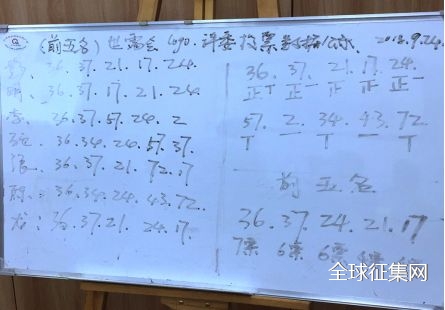 (前五名) 世露会 logo 评委投票 2012.9.24.
36.37.21.17.24.
明: 36.37.21.17.24.
李: 36.37.57.24.2
36.34.24.57.37.
张: 36.37.21.72.17
36.34.24.43.72.
龙: 36.37.21. 24.17.
36. 37. 21. 17. 24.
正丅 正一 正 正 正一
57. 2. 34. 43. 72
丅 一 丅 一 丅
前五名
36.37.24.21.17
7票 6票 6票
全球征集网